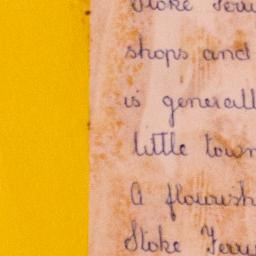 Stoke Ferry
shops and
is generall
little town
A flourish
Stoke Ferry